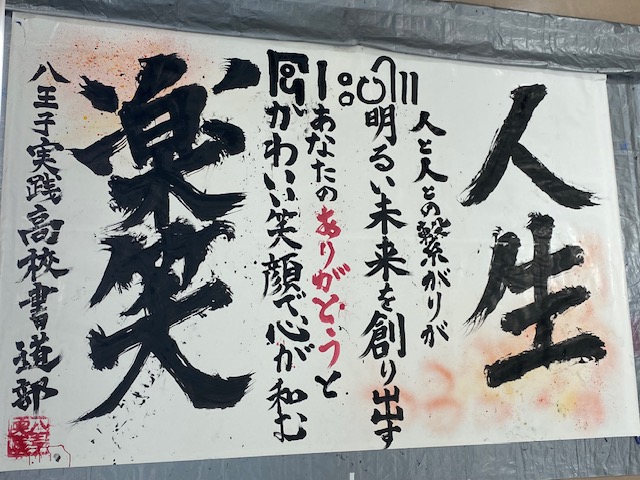 人生
人と人との繋がりが
明るい未来を創り出す
あなたのありがとうと
がわいい笑顔で心が和む
楽笑
八王子実践高校書道部